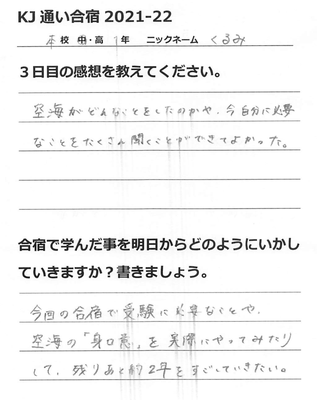 KJ 通い合宿 2021-22
本校 中・高 1年 ニックネーム くるみ
３日目の感想を教えてください。
空海がどんなことをしたのかや、今自分に必要
なことをたくさん聞くことができてよかった。
合宿で学んだ事を明日からどのようにいかし
ていきますか？書きましょう。
今回の合宿で受験に必要なことや、
空海の「身口意」を実際にやってみたり
して、残りあと約2年をすごしていきたい。